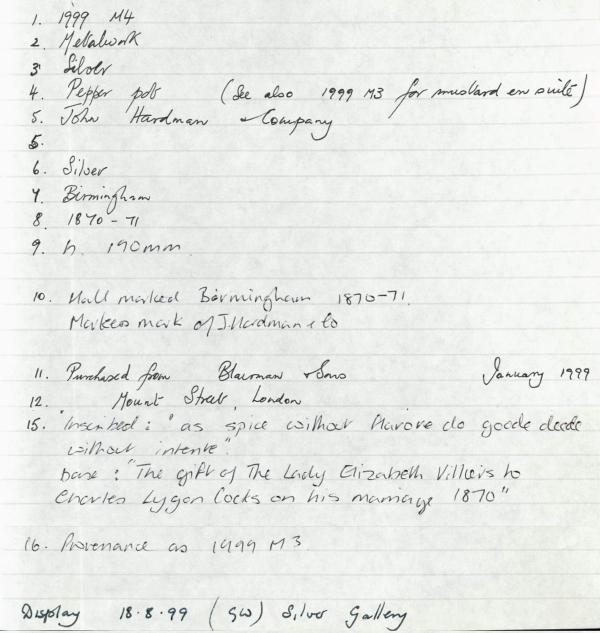 1. 1999 M4
2. Metalwork
3. Silver
4. Pepper pot (See also 1999 M3 for mustard en suite)
5. John Hardman & Company
5.
6. Silver
7. Birmingham
8. 1870-71
9. h. 190mm
10. Hall marked Birmingham 1870-71.
Makers mark of J. Hardman & Co
11. Purchased from Blairman & Sons January 1999
12. Mount Street, London
15. "Inscribed: "as spice without flavore do goode deede
without intente".
base: "The gift of The Lady Elizabeth Villiers to
Charles Lygon Cocks on his marriage 1870"
16. Provenance as 1999 M3.
Display 18.8.99 (GW) Silver Gallery